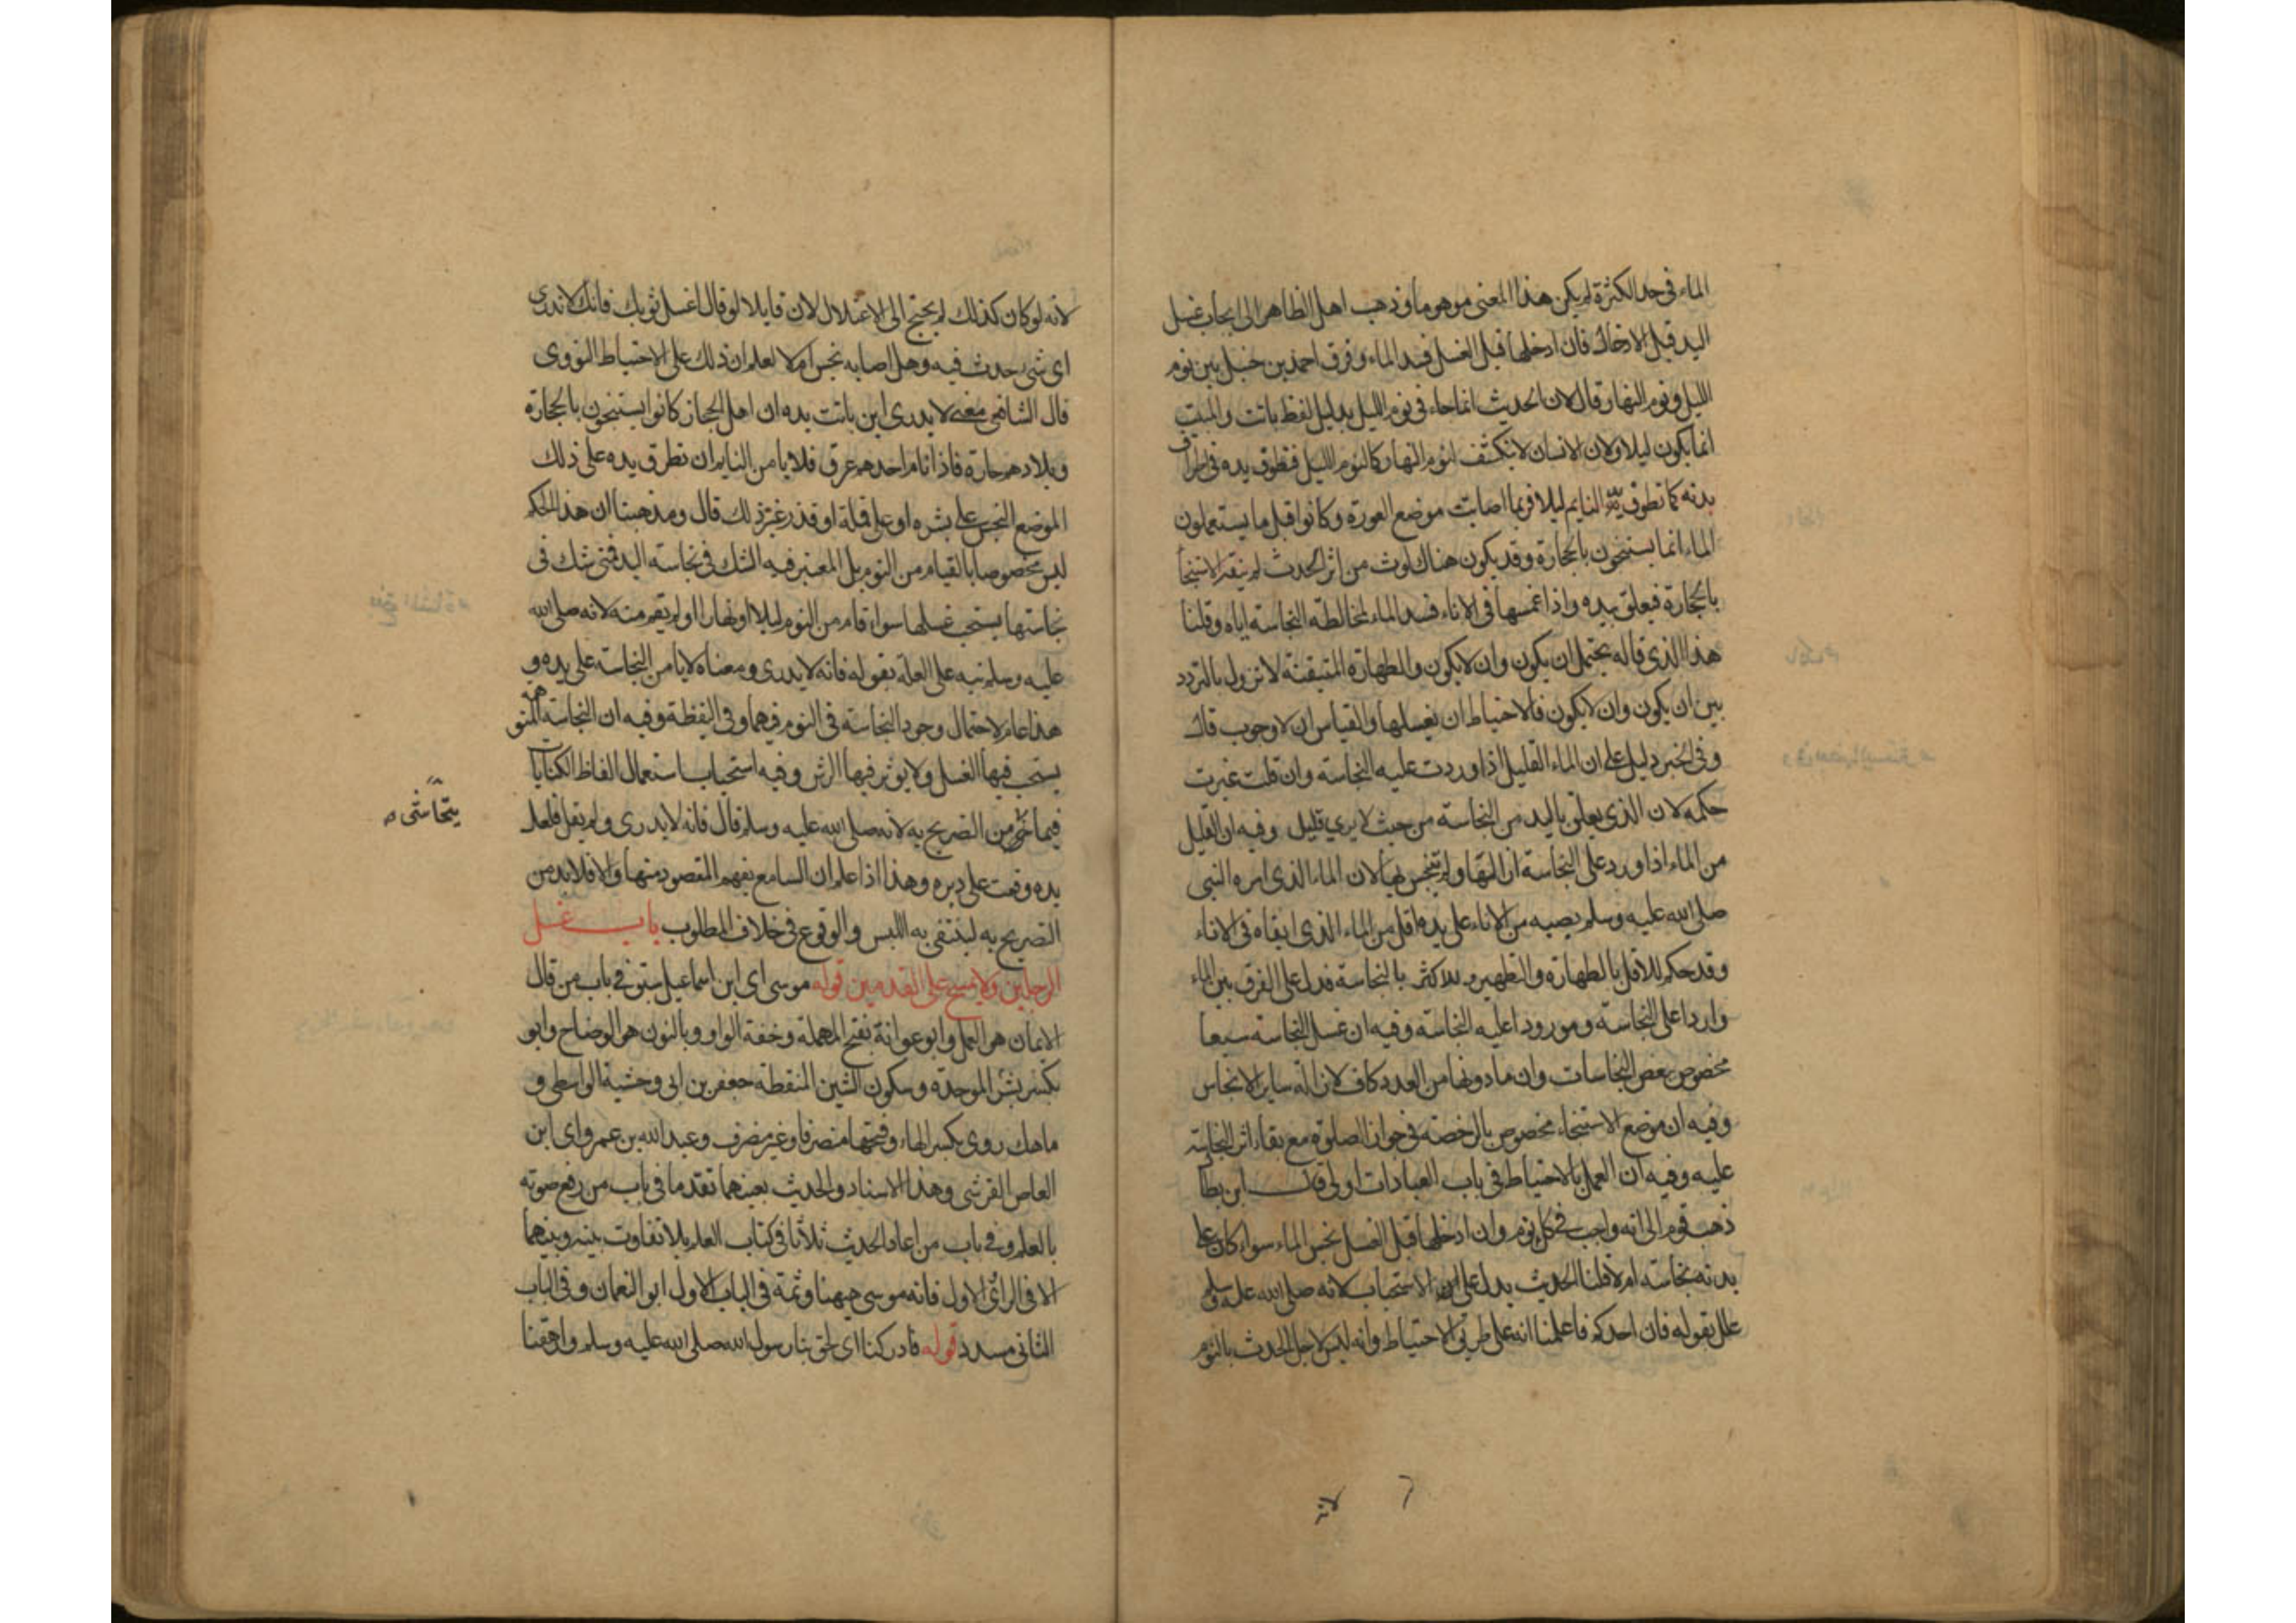 الماء في حد الكثرة لم يكن هذا المعنى موهوما وذهب اهل الظاهر الى ايجاب غسل
اليد قبل الادخال فان ادخلها قبل الغسل فسد الماء وفرق احمد بن حنبل بين نوم
الليل ونوم النهار قال لان الحديث انما جاء في نوم الليل بدليل لفظ باتت والمبيت
انما يكون ليلا ولان الانسان لا ينكشف لنوم النهار كالنوم الليل فتطوف يده في اطراف
بدنه كما تطوف يد النايم ليلا فربما اصابت موضع العورة وكانوا قبل ما يستعملون
الماء انما يستنجون بالحجارة وقد يكون هناك لوث من اثر الحدث لم ينقه الاستنجا
بالحجارة فيعلق بيده واذا غمسها في الاناء فسد الماء لمخالطة النجاسة اياه وقلنا
هذا الذي قاله يحتمل ان يكون وان لا يكون والطهارة المتيقنة لا تزول بالتردد
بين ان يكون وان لا يكون فالاحتياط ان يغسلها والقياس ان لا وجوب قال
وفي الخبر دليل على ان الماء القليل اذا وردت عليه النجاسة وان قلت غيرت
حكمه لان الذي يعلق باليد من النجاسة من حيث لا يرى قليل وفيه ان القليل
من الماء اذا ورد على النجاسة ازالتها ولم يتنجس بها لان الماء الذي امره النبي
صلى الله عليه وسلم بصبه من الاناء على يده اقل من الماء الذي ابقاه في الاناء
وقد حكم للاقل بالطهارة والتطهير وللاكثر بالنجاسة فدل على الفرق بين الماء
واردا على النجاسة ومورودا عليه النجاسة وفيه ان غسل النجاسة سبعا
مخصوص ببعض النجاسات وان ما دونها من العدد كاف لازالة ساير الانجاس
وفيه ان موضع الاستنجاء مخصوص بالرخصة في جواز الصلوة مع بقاء اثر النجاسة
عليه وفيه ان العمل بالاحتياط في باب العبادات اولى قال ابن بطال
ذهب قوم الى انه واجب في كل نوم وان ادخلها قبل الغسل نجس الماء سواء كان على
بدنه نجاسة ام لا قلنا الحديث يدل على الاستحباب لانه صلى الله عليه وسلم
علل بقوله فان احدكم فاعلمنا انه على طريق الاحتياط وانه ليس لاجل الحدث بالنوم
لانه
لانه لو كان كذلك لم يحتج الى الاعتلال لان قايلا لو قال اغسل ثوبك فانك لا تدري
اي شي حدث فيه وهل اصابه نجس ام لا لعلم ان ذلك على الاحتياط النووي
قال الشافعي معنى لا يدري اين باتت يده ان اهل الحجاز كانوا يستنجون بالحجارة
وبلادهم حارة فاذا نام احدهم عرق فلا يامن النايم ان تطوف يده على ذلك
الموضع النجس او على بثره او على قملة او قذر غير ذلك قال ومذهبنا ان هذا الحكم
ليس مخصوصا بالقيام من النوم بل المعتبر فيه الشك في نجاسة اليد فمتى شك في
نجاستها يستحب غسلها سواء قام من النوم ليلا او نهارا او لم يقم منه لانه صلى الله
عليه وسلم نبه على العلة بقوله فانه لا يدري ومعناه لا يامن النجاسة على يده و
هذا عام لاحتمال وجود النجاسة في النوم فيهما وفي اليقظة وفيه ان النجاسة المتوهمة
يستحب فيها الغسل ولا يوثر فيها الرش وفيه استحباب استعمال الفاظ الكنايات
فيما يتحاشى من التصريح به لانه صلى الله عليه وسلم قال فانه لا يدري ولم يقل فلعل
يتحاشى
يده وقعت على دبره وهذا اذا علم ان السامع يفهم المقصود منها والا فلا بد من
التصريح به لينتفي به اللبس والوقوع في خلاف المطلوب باب غسل
الرجلين ولا يمسح على القدمين قوله موسى اي ابن اسماعيل التبوذكي في باب من قال
الايمان هو العمل وابو عوانة بفتح المهملة وخفة الواو وبالنون هو الوضاح وابو
بشر بكسر الموحدة وسكون الشين المنقطة جعفر بن ابي وحشية الواسطي و
ماهك روي بكسر الهاء وفتحها منصرفا وغير منصرف وعبد الله بن عمرو اي ابن
العاص القرشي وهذا الاسناد والحديث بعينهما تقدما في باب من رفع صوته
بالعلم وفي باب من اعاد الحديث ثلاثا في كتاب العلم بلا تفاوت بينه وبينهما
الا في الراوي الاول فانه موسى ههنا وثمة في الباب الاول ابو النعمان وفي الباب
الثاني مسدد قوله فادركنا اي لحق بنا رسول الله صلى الله عليه وسلم وارهقنا